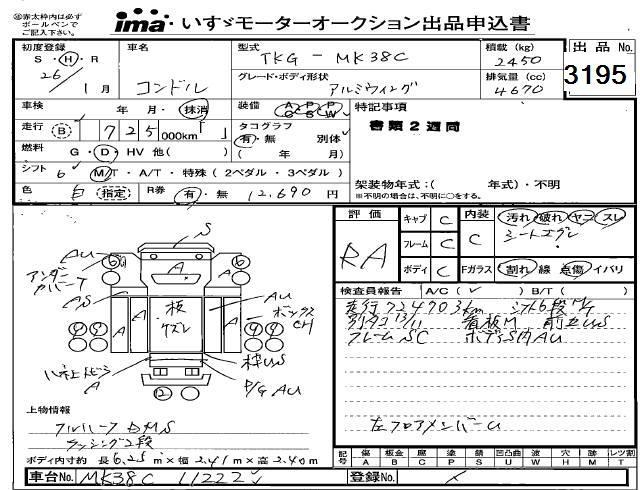 ※赤太枠内は必ず
ボールペンで
ご記入下さい。
ima いすゞモーターオークション出品申込書
初度登録 車名 型式 TKG - MK38C 積載(kg) 2450 出品 No.
S・H・R
26/1月 コンドル グレード・ボディ形状 アルミウイング 排気量(cc) 4670 3195
車検 年 月・抹消 装備 A・C P・S P・W 特記事項
走行 B 725,000km「 」 タコグラフ 有・無 別体 書類2週間
燃料 G・D・HV 他( ) ( 年 月)
シフト 6 M/T・A/T・特殊(2ペダル・3ペダル)
架装物年式:( 年式)・不明
色 白 指定 R券 有・無 12,690円 ※不明の場合は、不明に○をする。
評価 キャブ C 内装 汚れ 破れ ヤニ スレ
RA フレーム C C シートコゲ
ボディ C Fガラス 割れ 線 点傷 イバリ
検査員報告 A/C(✓) B/T( )
走行724703km シフト6段M/T
看板M
フレームSC ボデーS内AU
左フロアメンバーU
S
AU
アンダーカバーT
AS
A
板ズレ
AU
ボックスCH
枠US
P/G AU
A
上物情報
ラッシング2段
ボディ内寸約 長6.25m×幅2.41m×高2.40m
記号 傷 A 板金 B 腐 C 塗 P 錆 S 凹凸曲 U 波 W 穴 H 跡 M レツ割 T
車台No. MK38C 11222 登録No.